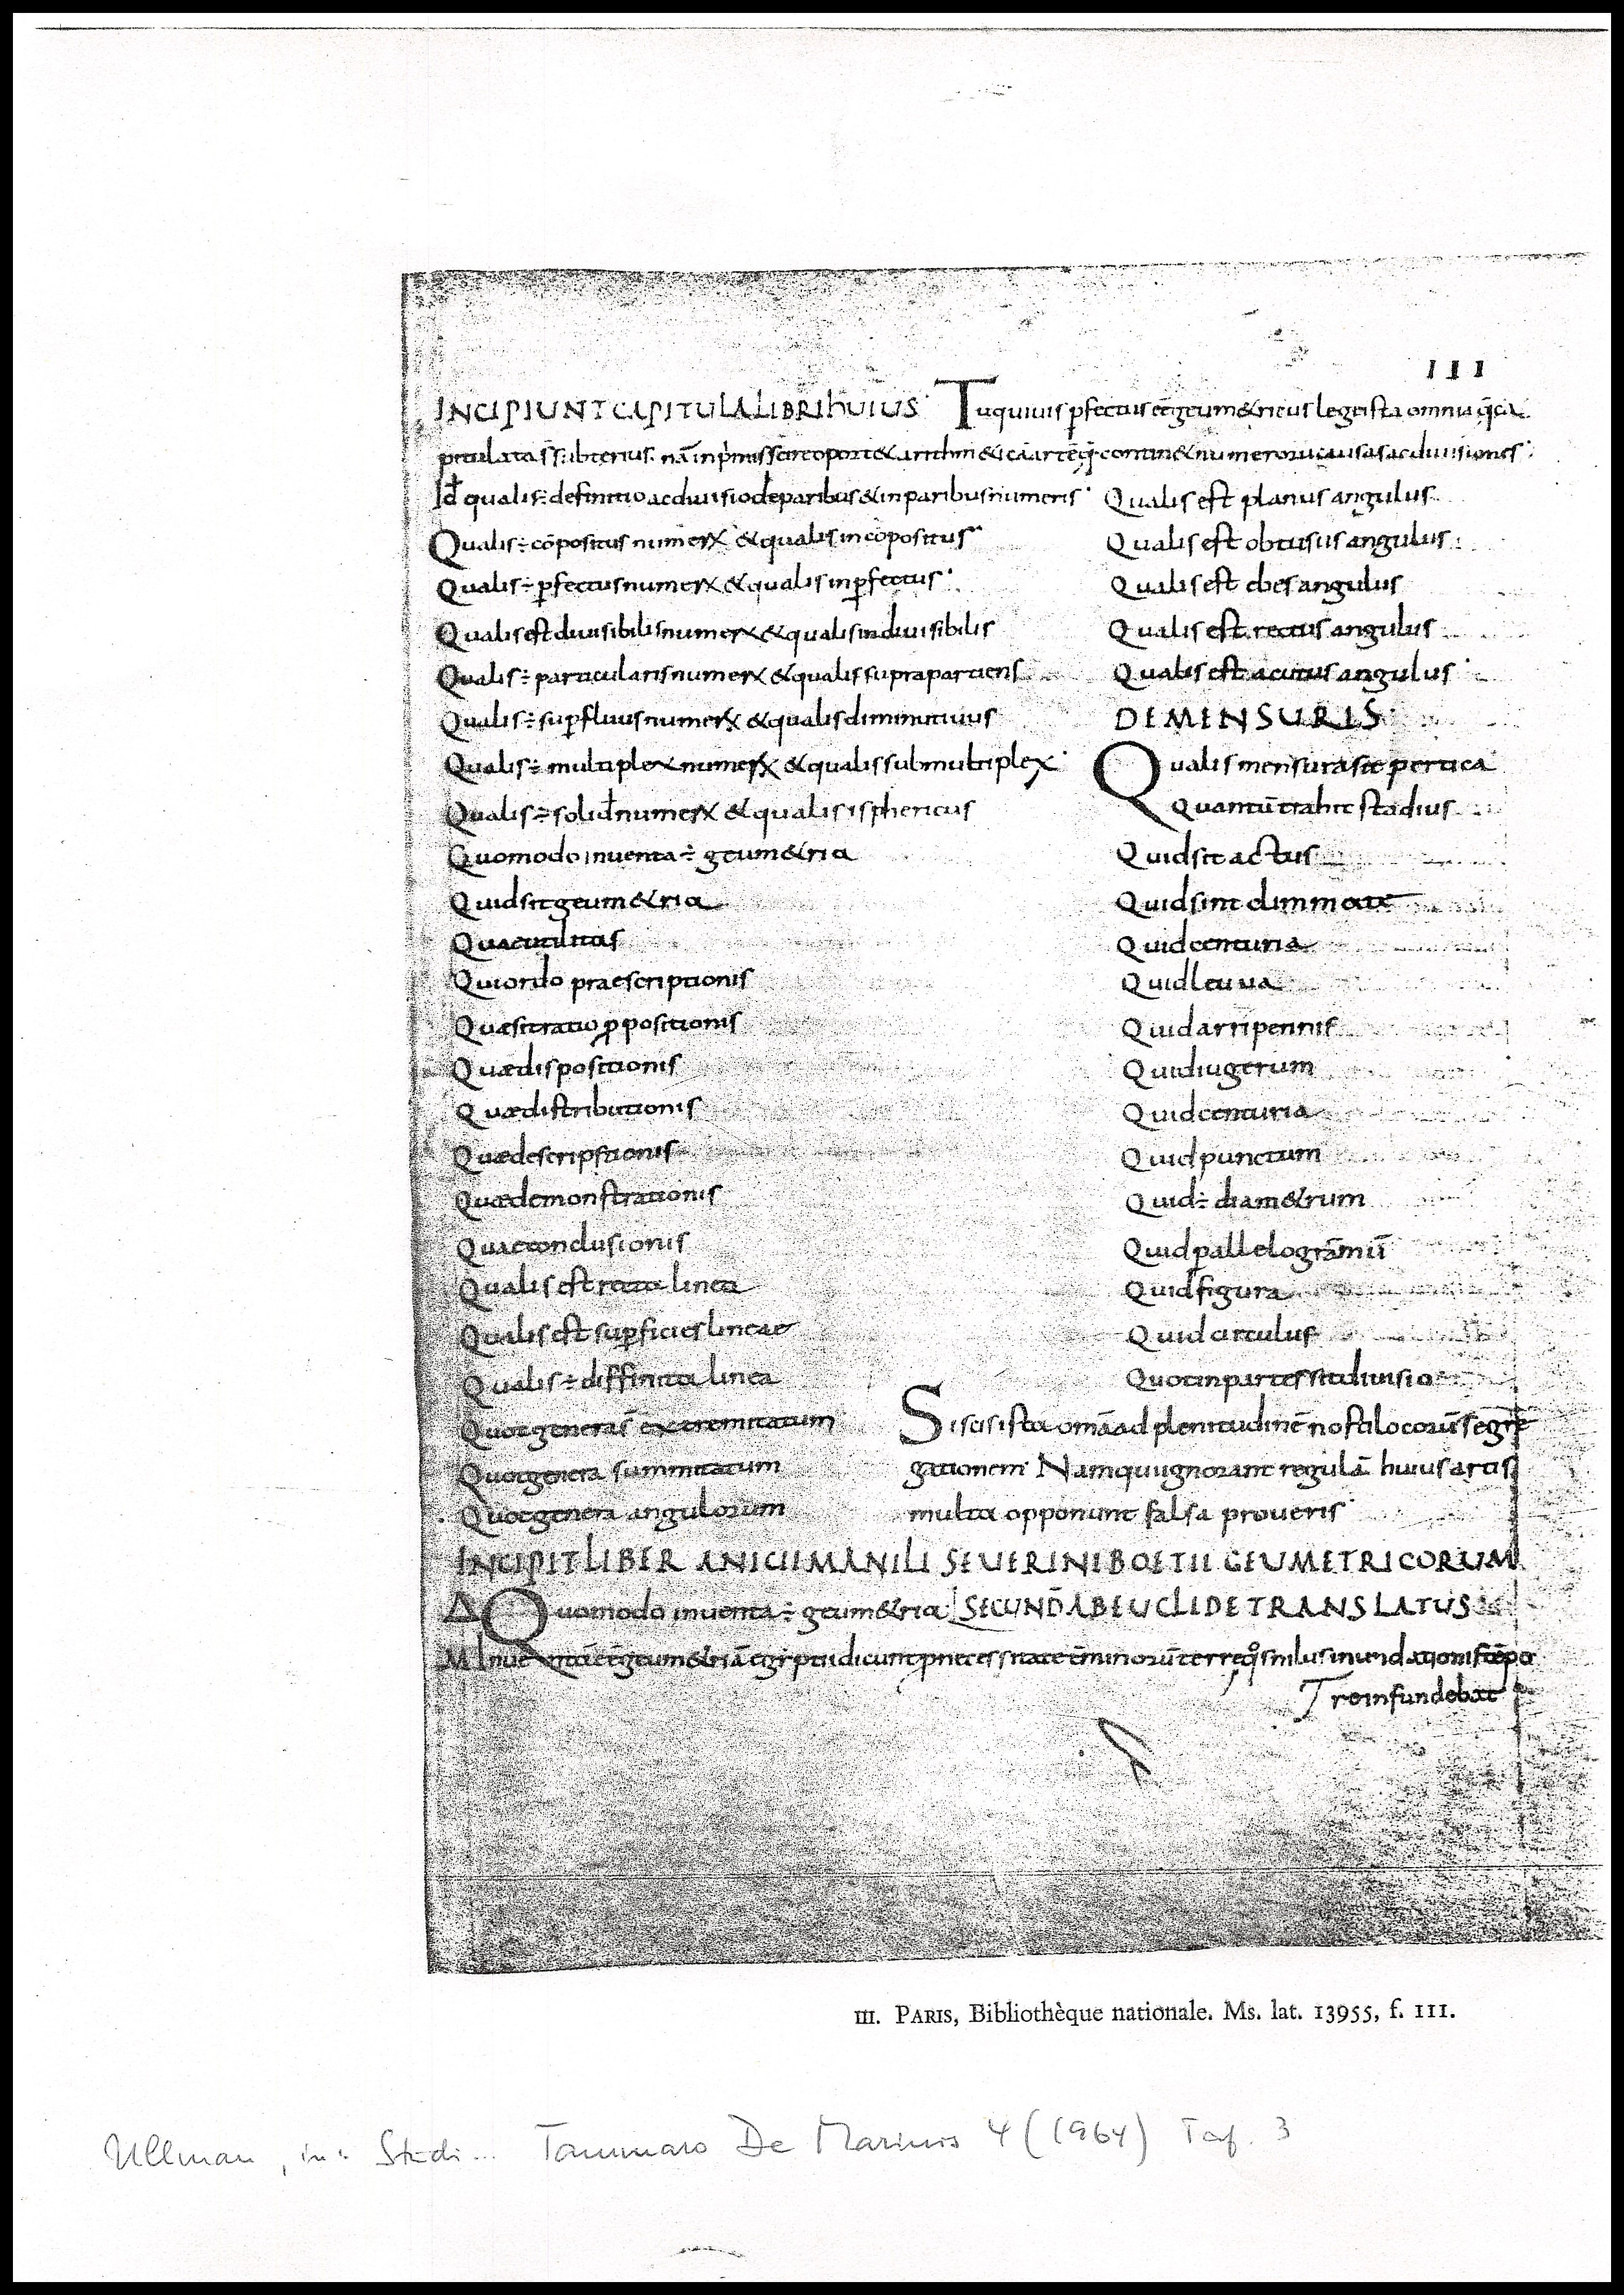 III
INCIPIUNT CAPITULA LIBRI hUIUS Tuquiuis ꝑfectus eē geum&ricus lege ista omnia q̄ ca
pitulata s̄ subterius. nā inprimis scire oport& arithm&icā artē q̄ contin& numeroru causas ac diuisiones
Id qualis ÷ definitio acdiuisio de paribus & inparibus numeris
Qualis ÷ cōpositus numerꝰ & qualis incōpositus
Qualis ÷ ꝑfectus numerꝰ & qualis inꝑfectus
Qualis est diuisibilis numerꝰ & qualis indiuisibilis
Qualis ÷ particularis numerꝰ & qualis suprapartiens
Qualis ÷ suꝑfluus numerꝰ & qualis diminutiuus
Qualis ÷ multiplex numerꝰ & qualis submultiplex
Qualis ÷ solid numerꝰ & qualis isphericus
Quomodo inuenta ÷ geum&ria
Quid sit geum&ria
Quae utilitas
Qui ordo praescriptionis
Quæ sit ratio ꝓpositionis
Quæ dispositionis
Quæ distributionis
Quæ descripstionis
Quæ demonstrationis
Quae conclusionis
Qualis est recta linea
Qualis est suꝑficies lineae
Qualis ÷ diffinita linea
Quot genera s̄ extremitatum
Quot genera summitatum
Quot genera angulorum
Qualis est planus angulus
Qualis est obtusus angulus
Qualis est ebes angulus
Qualis est rectus angulus
Qualis est acutus angulus
DE MENSURIS
Qualis mensura sit pertica
Quantū trahit stadius
Quid sit actus
Quid sint climmate
Quid centuria
Quid leuua
Quid arripennis
Quid iugerum
Quid centuria
Quid punctum
Quid ÷ diam&rum
Quid pallelogrāmū
Quid figura
Quid circulus
Quot in partes sit diuisio
Si scis ista omā ad plenitudinē nosti locorū segre
gationem Nam qui ignorant regulā huius artis
multa opponunt falsa pro ueris
INCIPIT LIBER ANICII MANILI SEUERINI BOETII GEUMETRICORUM
Δ Quomodo inuenta ÷ geum&ria SECUND AB EUCLIDE TRANSLATUS
M Inuentā eē geum&riā egiptii dicunt ꝓ necessitate tminorū terreq̊s nilus inundationis tēpo
re infundebat
III. PARIS, Bibliothèque nationale. Ms. lat. 13955, f. 111.
Ullman, in: Studi... Tammaro De Marinis 4 (1964) Taf. 3